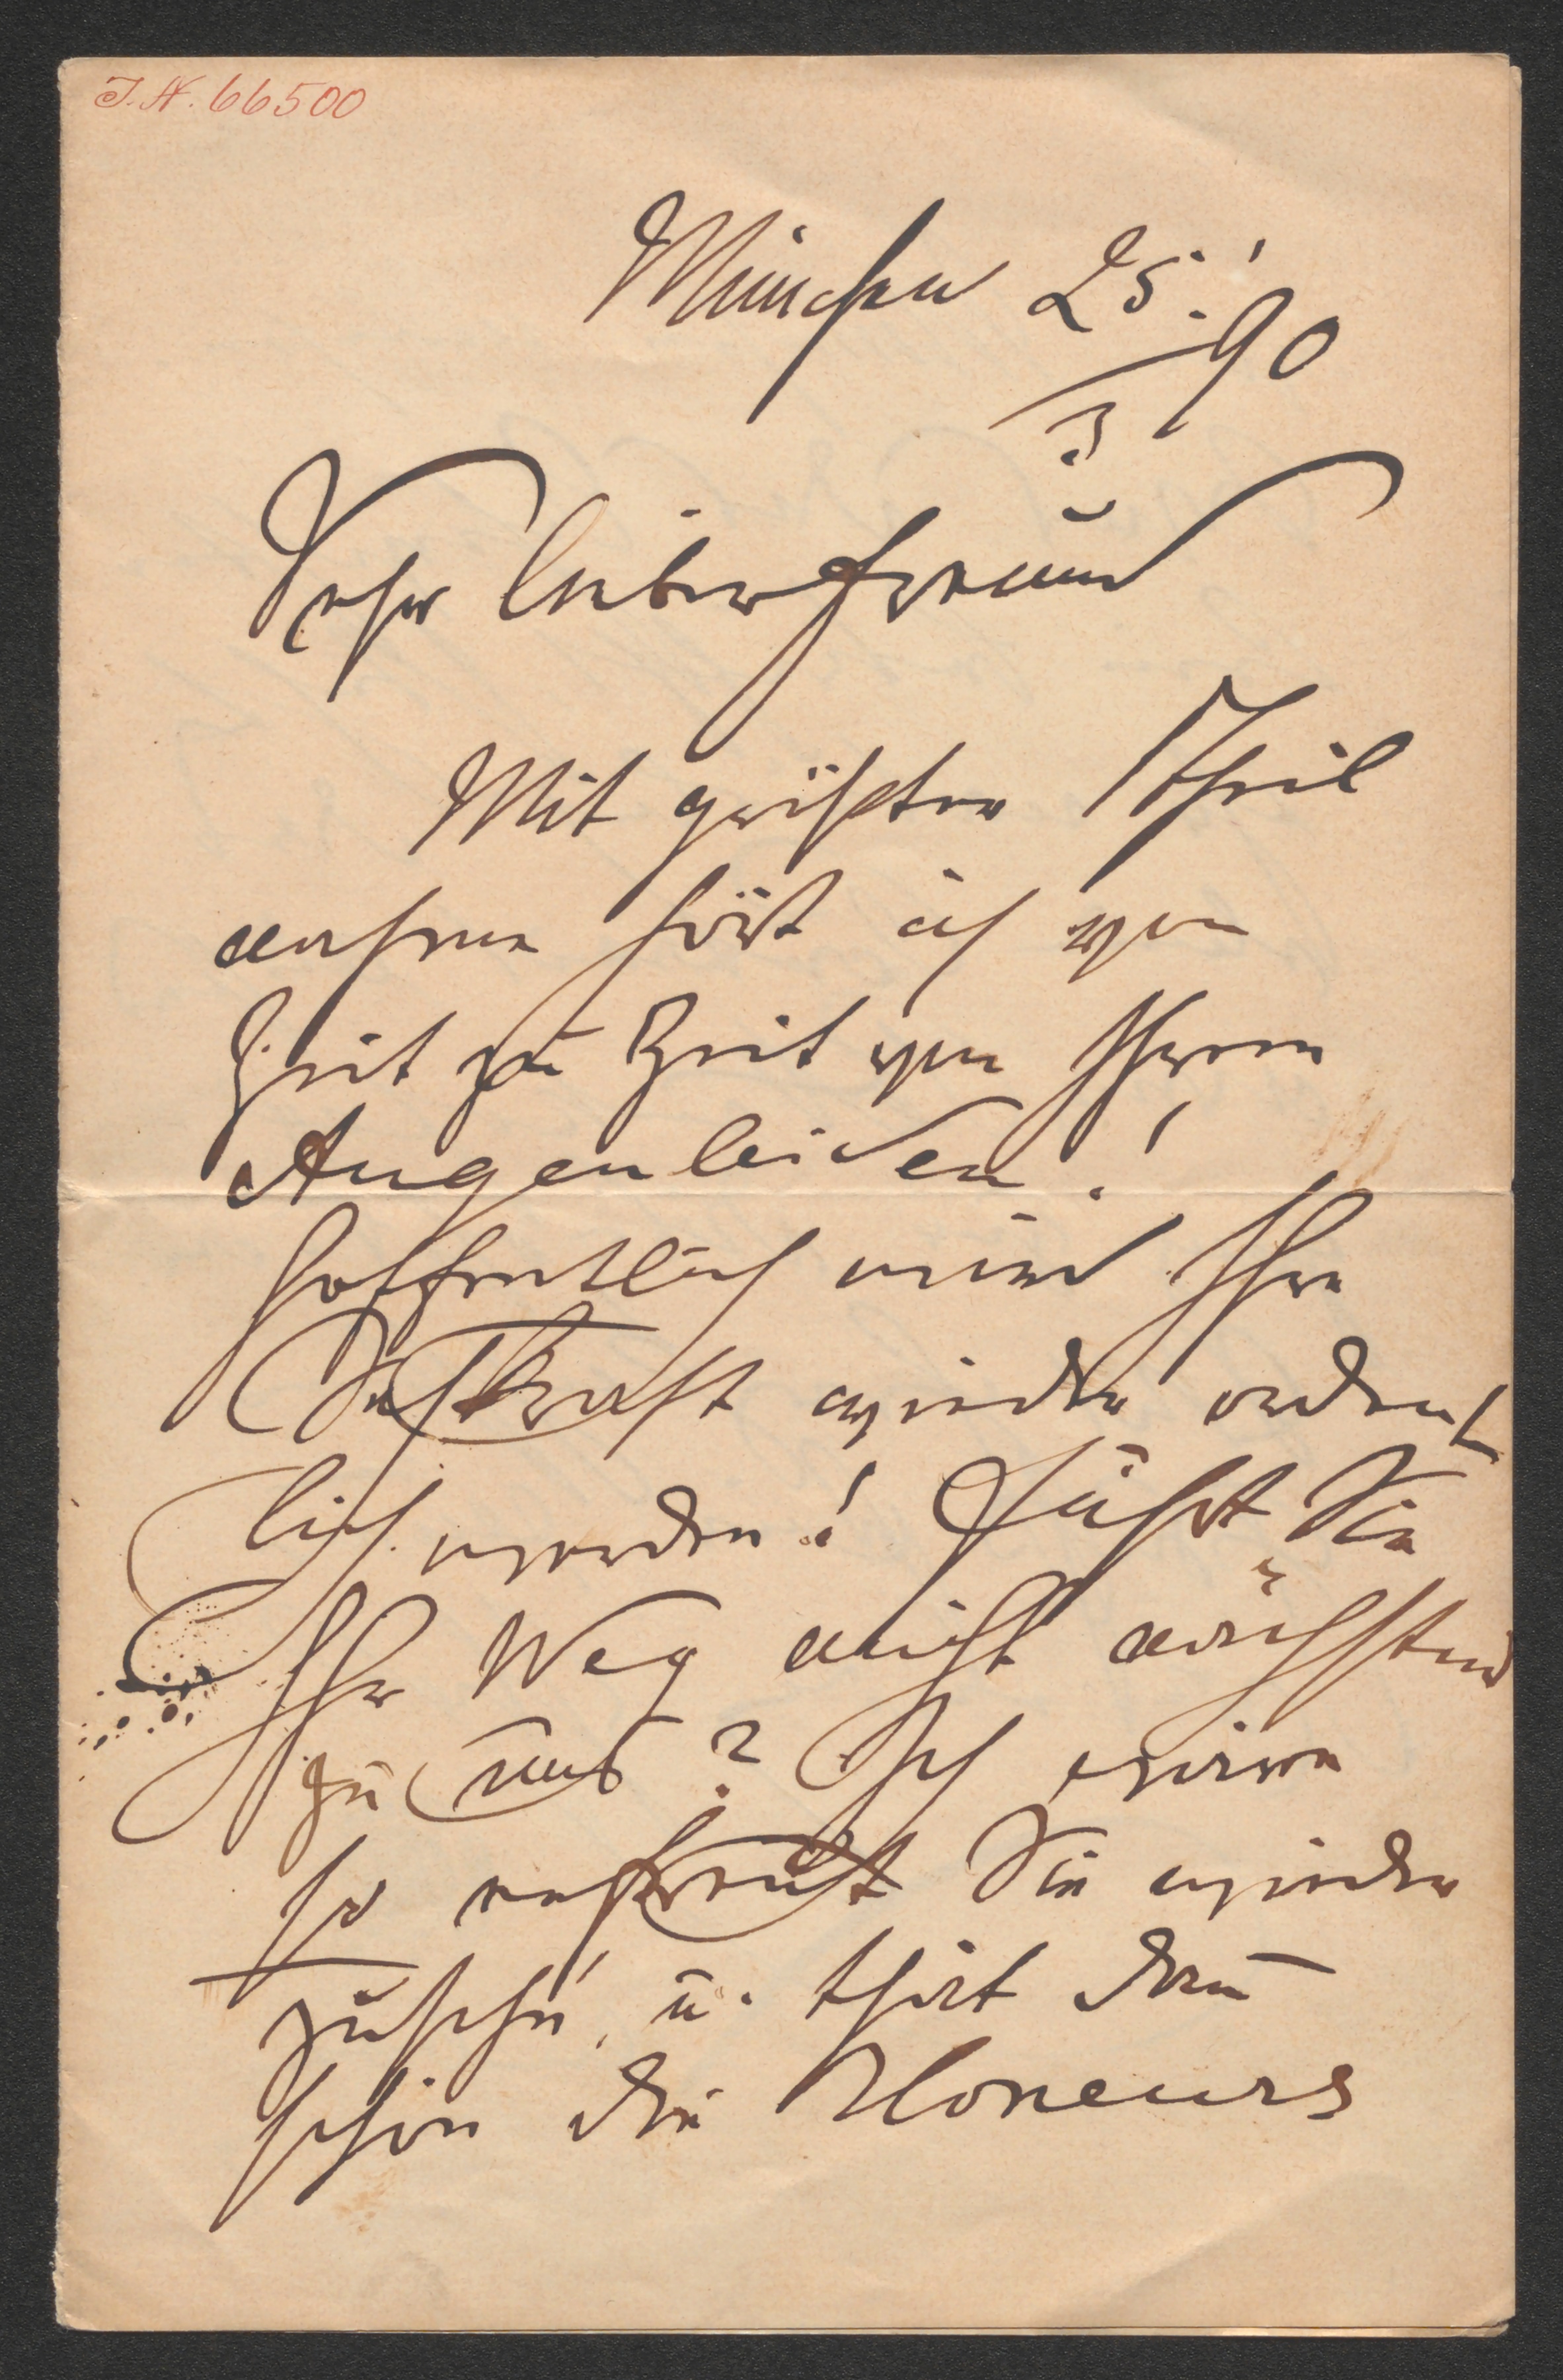 J.N. 66500
München 25./3. 90
Sehr lieber Freund
Mit größter Theil
nahme hört ich von
Zeit zu Zeit von Ihrem
Augenleiden!
Hoffentlich wird Ihre
Sehkraft wieder ordent
lich werden! Führt Sie
Ihr Weg nicht nächstens
zu uns? Ich wäre
so erfreut Sie wieder
zusehn, u. thät dann
schön die Honeurs